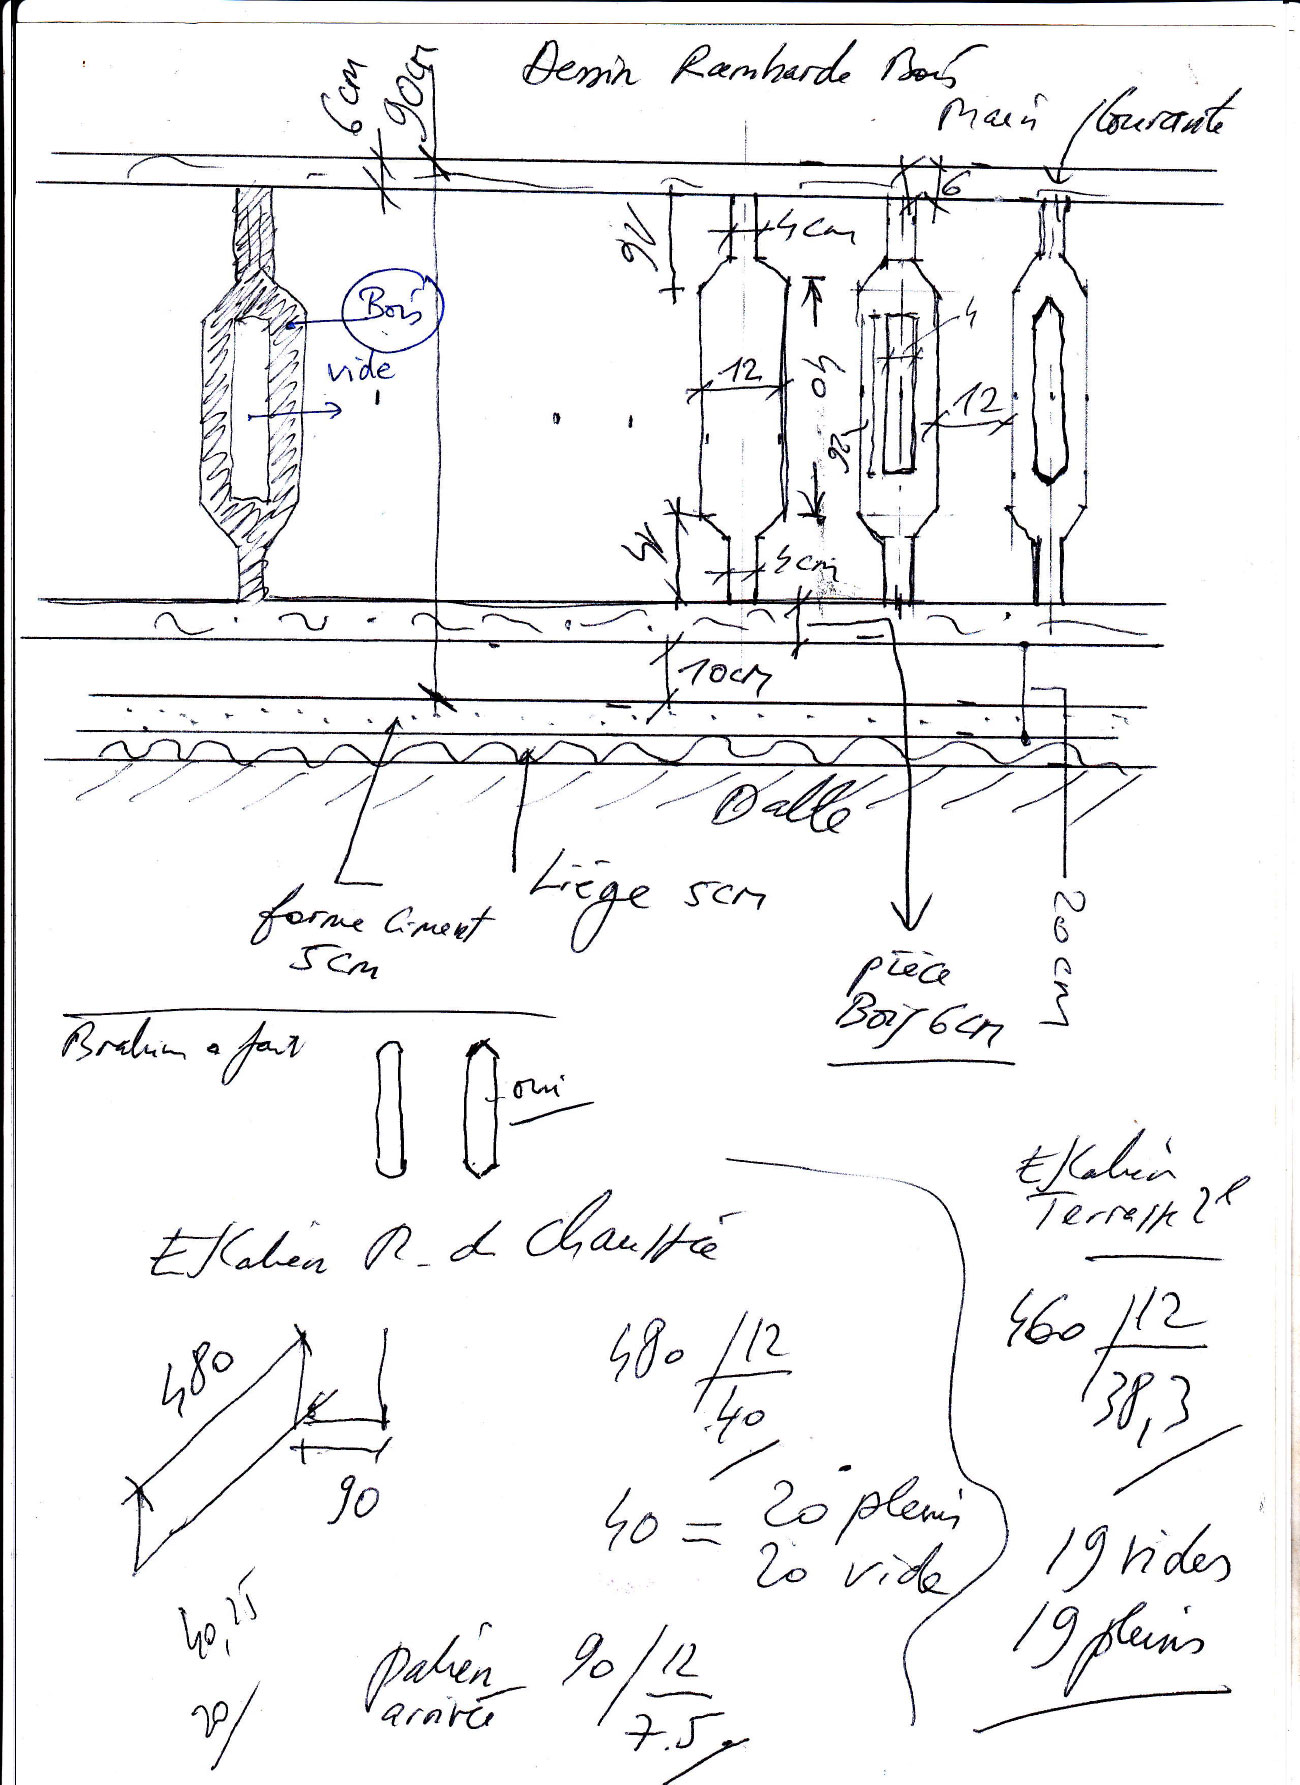 Dessin Rambarde Bois
6cm
90cm
Main Courante
6
4cm
Bois
vide
12
40
4
26
12
4cm
10cm
Dalle
Liège 5cm
forme Ciment
5cm
pièce
Bois 6cm
20cm
Brahim a fait
oui
Terrasse 2e
R. d Chaussée
480
90
480/12
40
460/12
38,3
40 = 20 pleins
20 vide
19 vides
19 pleins
40,25
20/
palier
arrivée
90/12
7.5